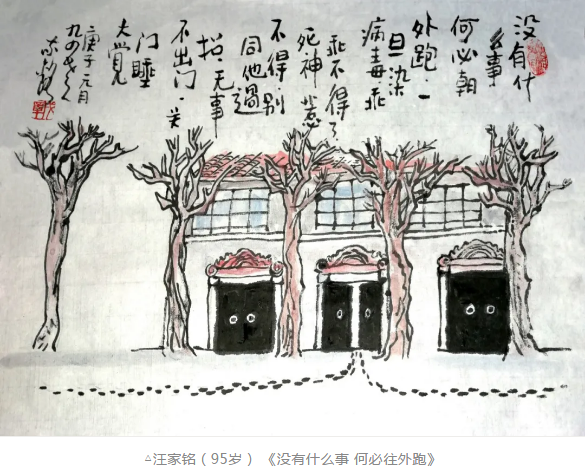 没有什
么事
何必朝
外跑·一
旦染
病毒乖
乖不得了
死神惹
不得别
同他过
招·无事
不出门·关
门睡
大觉
庚子元月
△汪家铭（95岁）《没有什么事 何必往外跑》